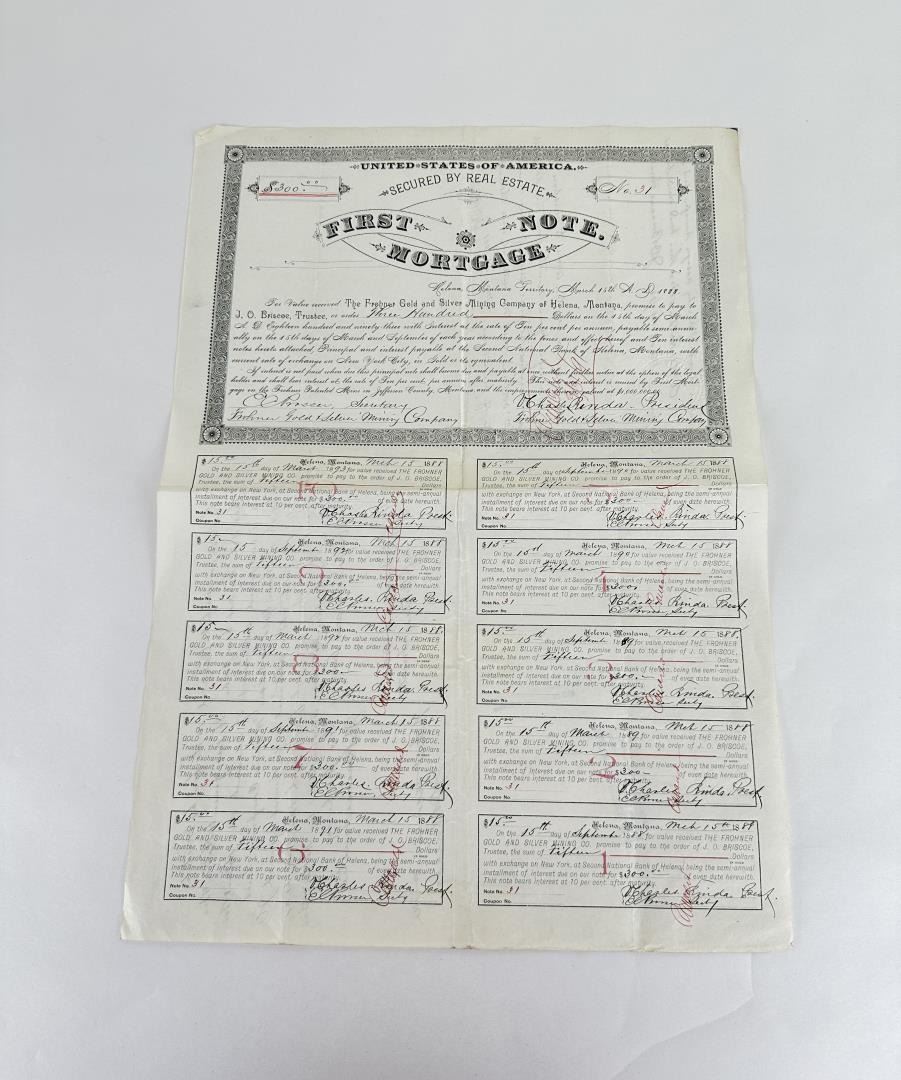 UNITED STATES OF AMERICA.
SECURED BY REAL ESTATE.
$300.00
No. 31
FIRST NOTE.
MORTGAGE
Helena, Montana Territory, March 15th A. D. 1888.
For Value received The Frohner Gold and Silver Mining Company of Helena, Montana, promise to pay to
J. O. Briscoe, Trustee, or order Three Hundred Dollars on the 15th day of March
A. D. Eighteen hundred and ninety three with Interest at the rate of Ten per cent per annum, payable semi-annu-
ally on the 15th days of March and September of each year according to the tenor and effect hereof and Ten interest
notes hereto attached, Principal and interest payable at the Second National Bank of Helena, Montana, with
current rate of exchange on New York City, in Gold or its equivalent.
If interest is not paid when due this principal note shall become due and payable at once without further notice at the option of the legal
holder and shall bear interest at the rate of Ten per cent. per annum after maturity. This note and interest is secured by First Mort-
gage on the Frohner Patented Mine in Jefferson County, Montana, and the improvements thereon valued at $1,000,000.00
Secretary V. Charles Rinda President
Frohner Gold & Silver Mining Company Frohner Gold & Silver Mining Company
$15.00 Helena, Montana, Mch 15 1888
On the 15th day of March 1893 for value received THE FROHNER
GOLD AND SILVER MINING CO. promise to pay to the order of J. O. BRISCOE,
Trustee, the sum of Fifteen Dollars
IN GOLD
with exchange on New York, at Second National Bank of Helena, being the semi-annual
installment of interest due on our note for $300.00 of even date herewith.
This note bears interest at 10 per cent. after maturity.
Note No. 31 V. Charles Rinda Prest.
Coupon No. Secty
$15.00 Helena, Montana, March 15 1888
On the 15th day of September 1890 for value received THE FROHNER
GOLD AND SILVER MINING CO. promise to pay to the order of J. O. BRISCOE,
Trustee, the sum of Fifteen Dollars
IN GOLD
with exchange on New York, at Second National Bank of Helena, being the semi-annual
installment of interest due on our note for $300 of even date herewith.
This note bears interest at 10 per cent. after maturity.
Note No. 31 V. Charles Rinda Prest.
Coupon No. Secty
$15 Helena, Montana, Mch 15 1888
On the 15 day of September 1892 for value received THE FROHNER
GOLD AND SILVER MINING CO. promise to pay to the order of J. O. BRISCOE,
Trustee, the sum of Fifteen Dollars
IN GOLD
with exchange on New York, at Second National Bank of Helena, being the semi-annual
installment of interest due on our note for $300.00 of even date herewith.
This note bears interest at 10 per cent. after maturity.
Note No. 31 V. Charles Rinda Prest.
Coupon No. Secty
$15.00 Helena, Montana, Mch 15 1888
On the 15th day of March 1890 for value received THE FROHNER
GOLD AND SILVER MINING CO. promise to pay to the order of J. O. BRISCOE,
Trustee, the sum of Fifteen Dollars
IN GOLD
with exchange on New York, at Second National Bank of Helena, being the semi-annual
installment of interest due on our note for $300 of even date herewith.
This note bears interest at 10 per cent. after maturity.
Note No. 31 V. Charles Rinda Prest.
Coupon No. Secty
$15 Helena, Montana, Mch 15 1888.
On the 15th day of March 1892 for value received THE FROHNER
GOLD AND SILVER MINING CO. promise to pay to the order of J. O. BRISCOE,
Trustee, the sum of Fifteen Dollars
IN GOLD
with exchange on New York, at Second National Bank of Helena, being the semi-annual
installment of interest due on our note for $300 of even date herewith.
This note bears interest at 10 per cent. after maturity.
Note No. 31 V. Charles Rinda Prest.
Coupon No. Secty
$15.00 Helena, Montana, Mch 15 1888.
On the 15th day of September 1889 for value received THE FROHNER
GOLD AND SILVER MINING CO. promise to pay to the order of J. O. BRISCOE,
Trustee, the sum of Fifteen Dollars
IN GOLD
with exchange on New York, at Second National Bank of Helena, being the semi-annual
installment of interest due on our note for $300 of even date herewith.
This note bears interest at 10 per cent. after maturity.
Note No. 31 V. Charles Rinda Prest.
Coupon No. Secty
$15.00 Helena, Montana, March 15 1888
On the 15th day of September 1891 for value received THE FROHNER
GOLD AND SILVER MINING CO. promise to pay to the order of J. O. BRISCOE,
Trustee, the sum of Fifteen Dollars
IN GOLD
with exchange on New York, at Second National Bank of Helena, being the semi-annual
installment of interest due on our note for $300.00 of even date herewith.
This note bears interest at 10 per cent. after maturity.
Note No. 31 V. Charles Rinda Prest.
Coupon No. Secty
$15.00 Helena, Montana, Mch 15 1888
On the 15th day of March 1889 for value received THE FROHNER
GOLD AND SILVER MINING CO. promise to pay to the order of J. O. BRISCOE,
Trustee, the sum of Fifteen Dollars
IN GOLD
with exchange on New York, at Second National Bank of Helena, being the semi-annual
installment of interest due on our note for $300 of even date herewith.
This note bears interest at 10 per cent. after maturity.
Note No. 31 V. Charles Rinda Prest.
Coupon No. Secty
$15.00 Helena, Montana, March 15 1888
On the 15th day of March 1891 for value received THE FROHNER
GOLD AND SILVER MINING CO. promise to pay to the order of J. O. BRISCOE,
Trustee, the sum of Fifteen Dollars
IN GOLD
with exchange on New York, at Second National Bank of Helena, being the semi-annual
installment of interest due on our note for $300.00 of even date herewith.
This note bears interest at 10 per cent. after maturity.
Note No. 31 V. Charles Rinda Prest.
Coupon No. Secty
$15.00 Helena, Montana, Mch 15th 1888
On the 15th day of September 1888 for value received THE FROHNER
GOLD AND SILVER MINING CO. promise to pay to the order of J. O. BRISCOE,
Trustee, the sum of Fifteen Dollars
IN GOLD
with exchange on New York, at Second National Bank of Helena, being the semi-annual
installment of interest due on our note for $300.00 of even date herewith.
This note bears interest at 10 per cent. after maturity.
Note No. 31 V. Charles Rinda Prest.
Coupon No. Secty